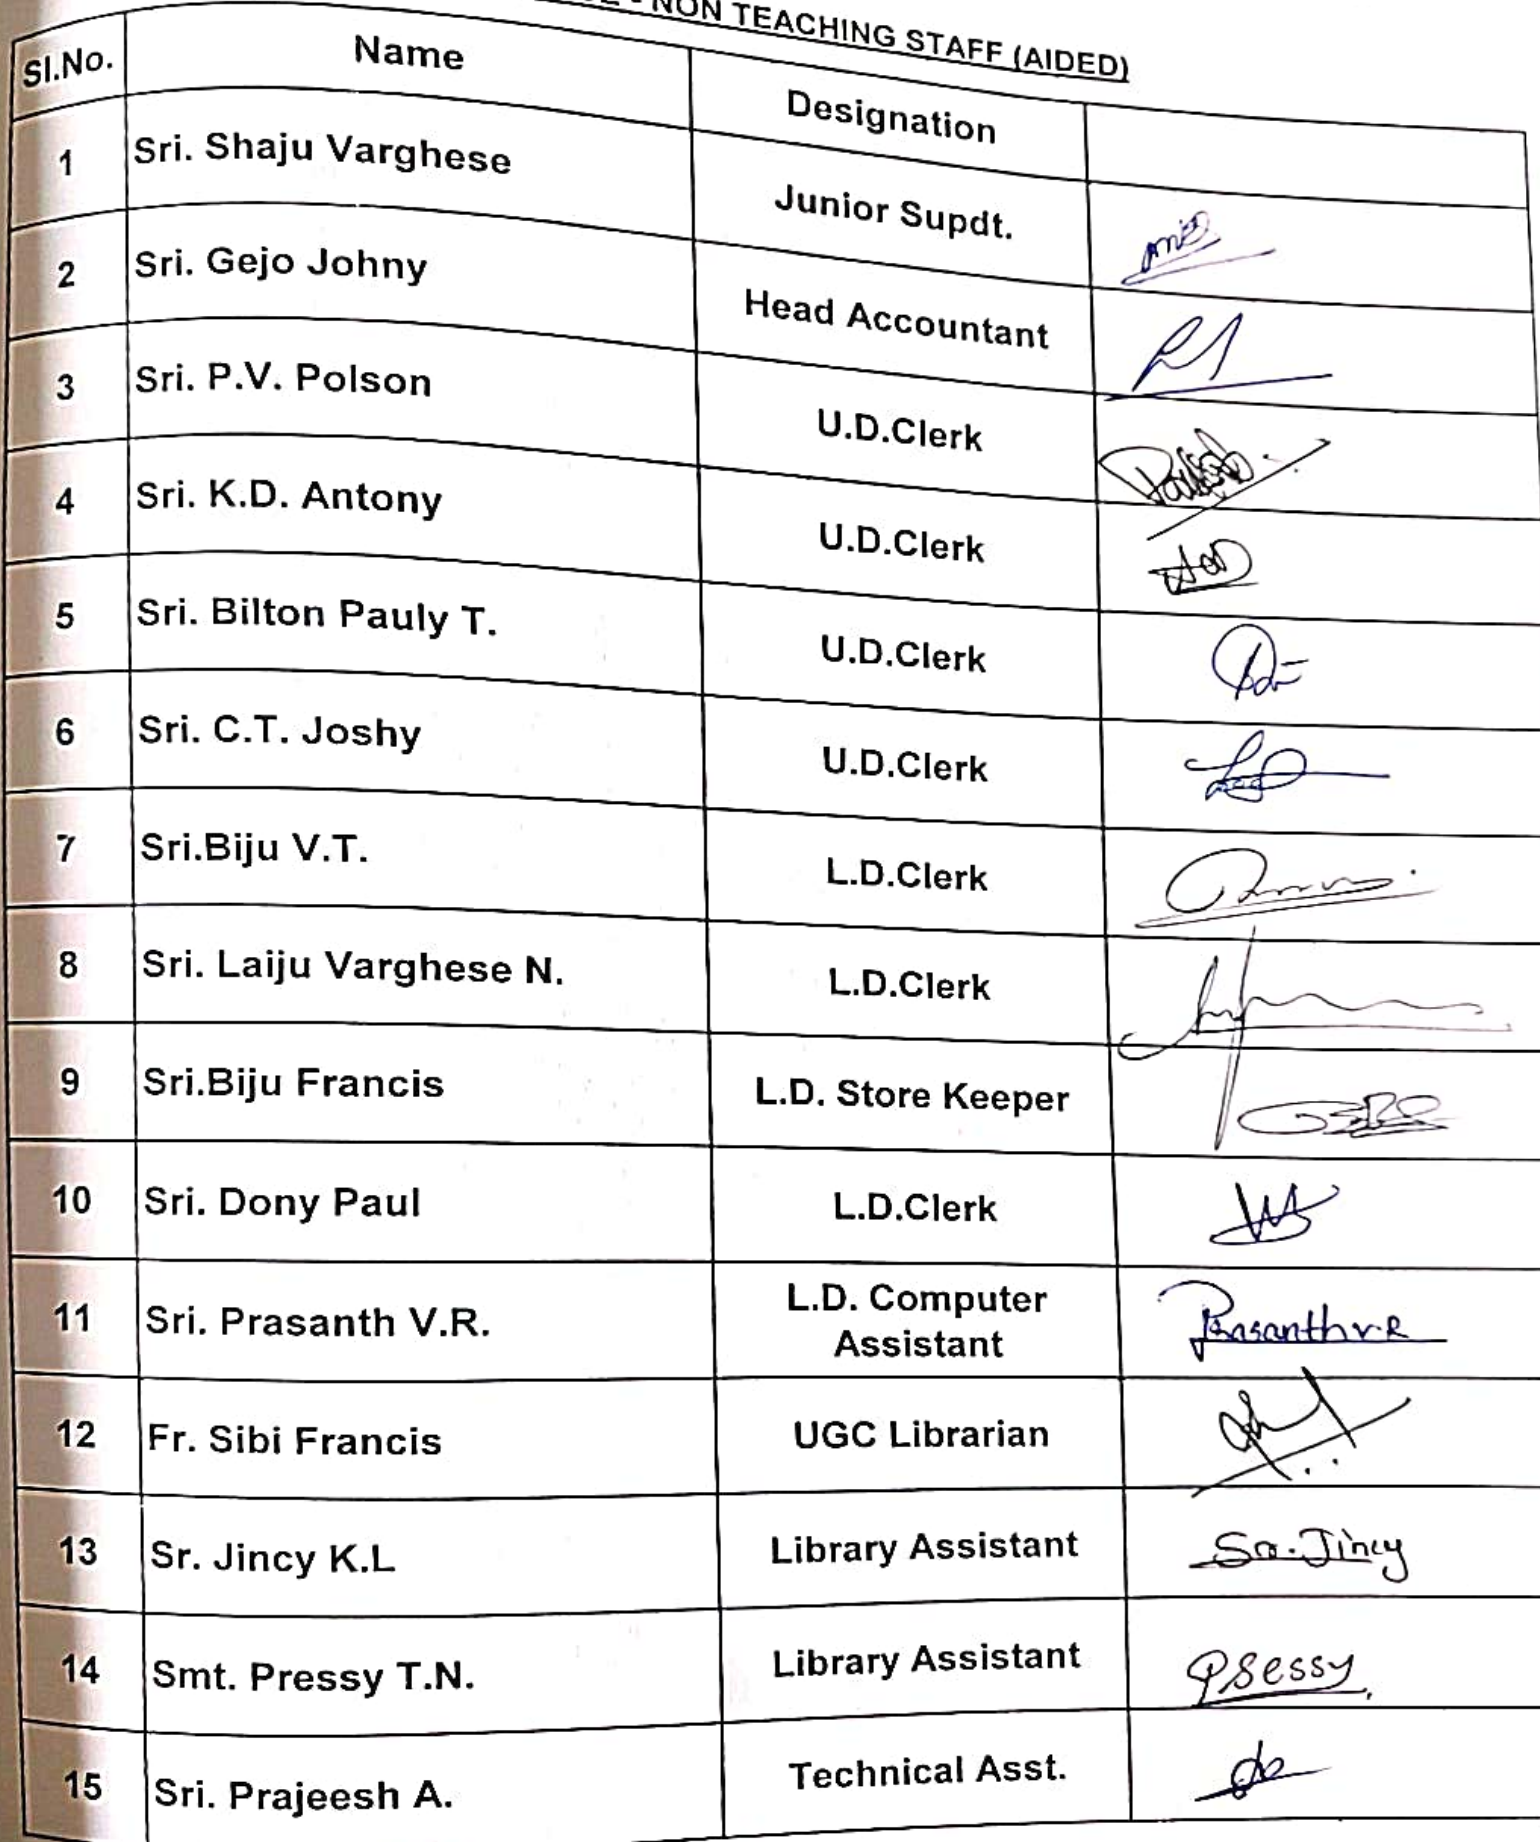 NON TEACHING STAFF (AIDED)
Sl.No. Name Designation
1 Sri. Shaju Varghese Junior Supdt.
2 Sri. Gejo Johny Head Accountant
3 Sri. P.V. Polson U.D.Clerk
4 Sri. K.D. Antony U.D.Clerk
5 Sri. Bilton Pauly T. U.D.Clerk
6 Sri. C.T. Joshy U.D.Clerk
7 Sri.Biju V.T. L.D.Clerk
8 Sri. Laiju Varghese N. L.D.Clerk
9 Sri.Biju Francis L.D. Store Keeper
10 Sri. Dony Paul L.D.Clerk
11 Sri. Prasanth V.R. L.D. Computer Prasanth v.R
Assistant
12 Fr. Sibi Francis UGC Librarian
13 Sr. Jincy K.L Library Assistant Sr. Jincy
14 Smt. Pressy T.N. Library Assistant Pressy
15 Sri. Prajeesh A. Technical Asst.